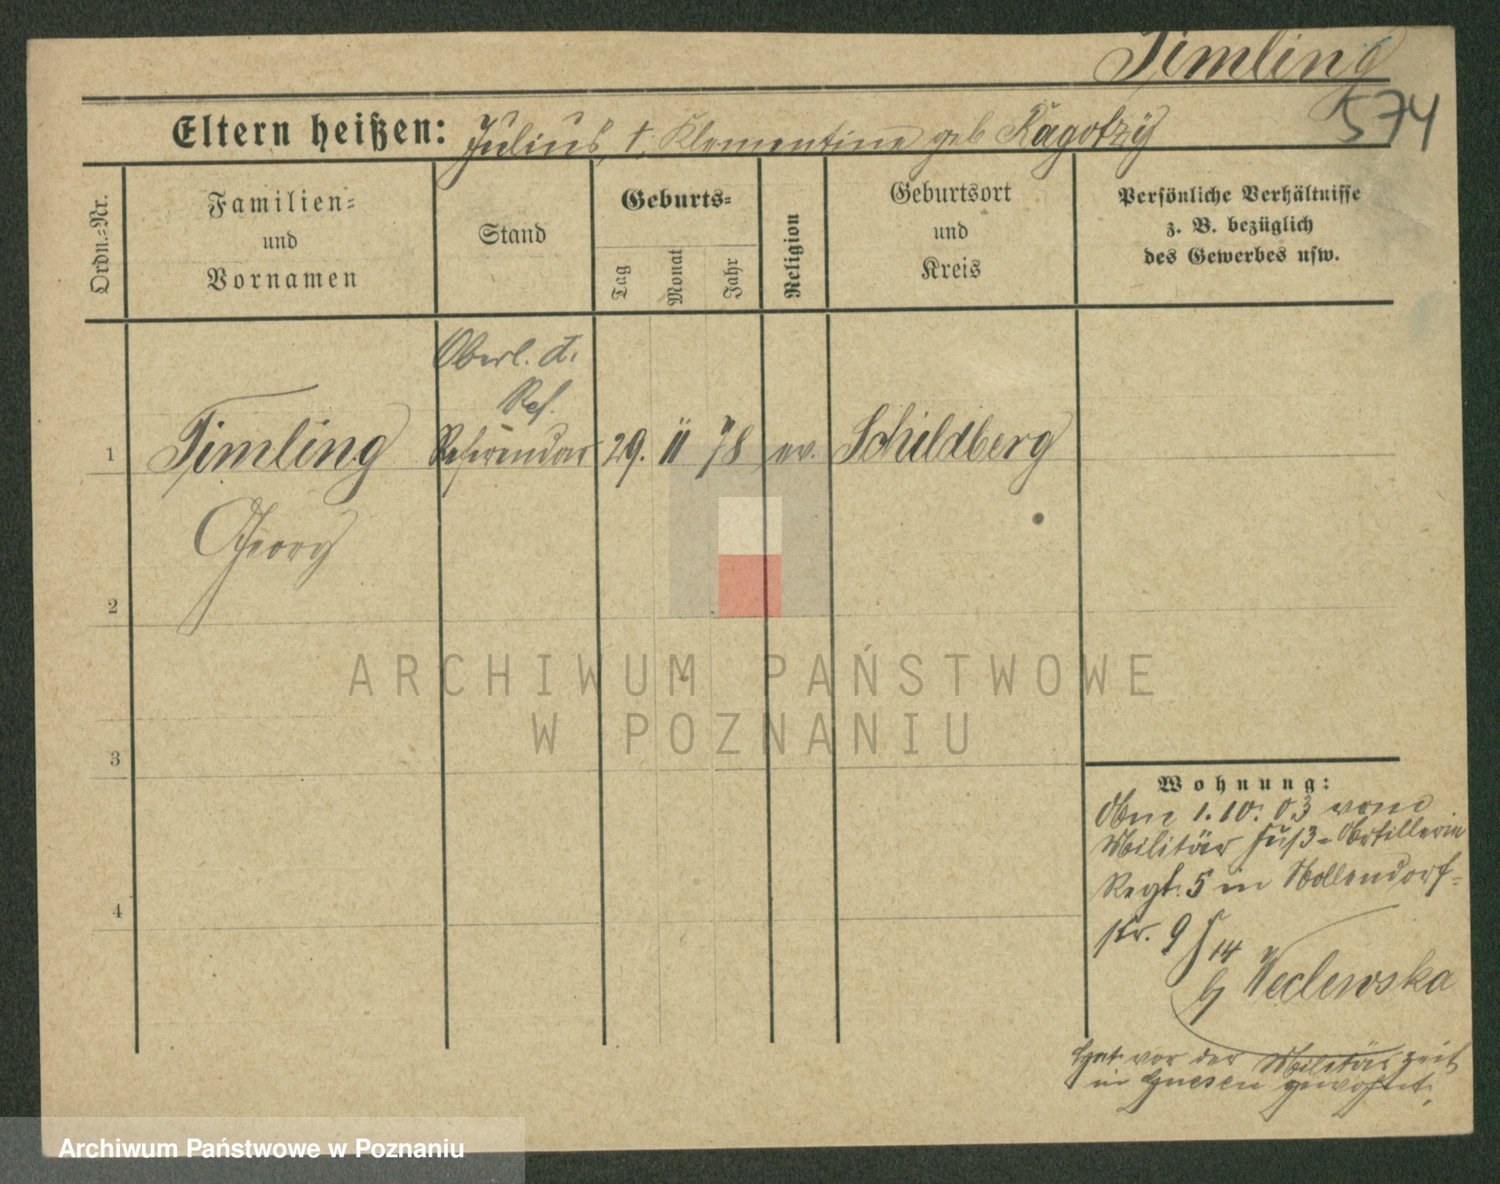 Timling
574
Eltern heißen: Julius, †, Klementine geb Ragotzÿ
Ordn.-Nr.
Familien-
und
Vornamen
Stand
Geburts-
Tag
Monat
Jahr
Religion
Geburtsort
und
Kreis
Persönliche Verhältnisse
z. B. bezüglich
des Gewerbes usw.
Oberl. d.
Res.
1 Timling Referendar 29. 11 78 ev. Schildberg
Georg
2
3
4
Wohnung:
1. 10. 03 vom
Militär Fuß-Artillerie
Regt. 5 in Nollendorf-
str. 9
14
Weclewska
Hat vor der Militärzeit
in Gnesen gewohnt.
ARCHIWUM PAŃSTWOWE
W POZNANIU
Archiwum Państwowe w Poznaniu